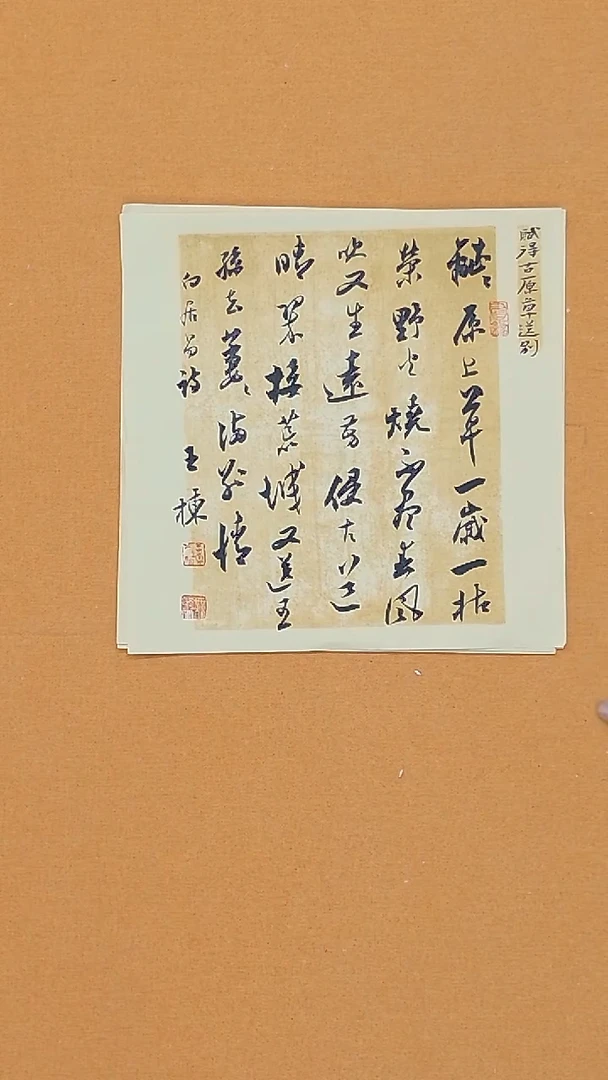 賦得古原草送别
離〻原上草一歲一枯
榮野火燒不盡春風
吹又生遠芳侵古道
晴翠接荒城又送王
孫去萋〻滿别情
白居易詩 王棟